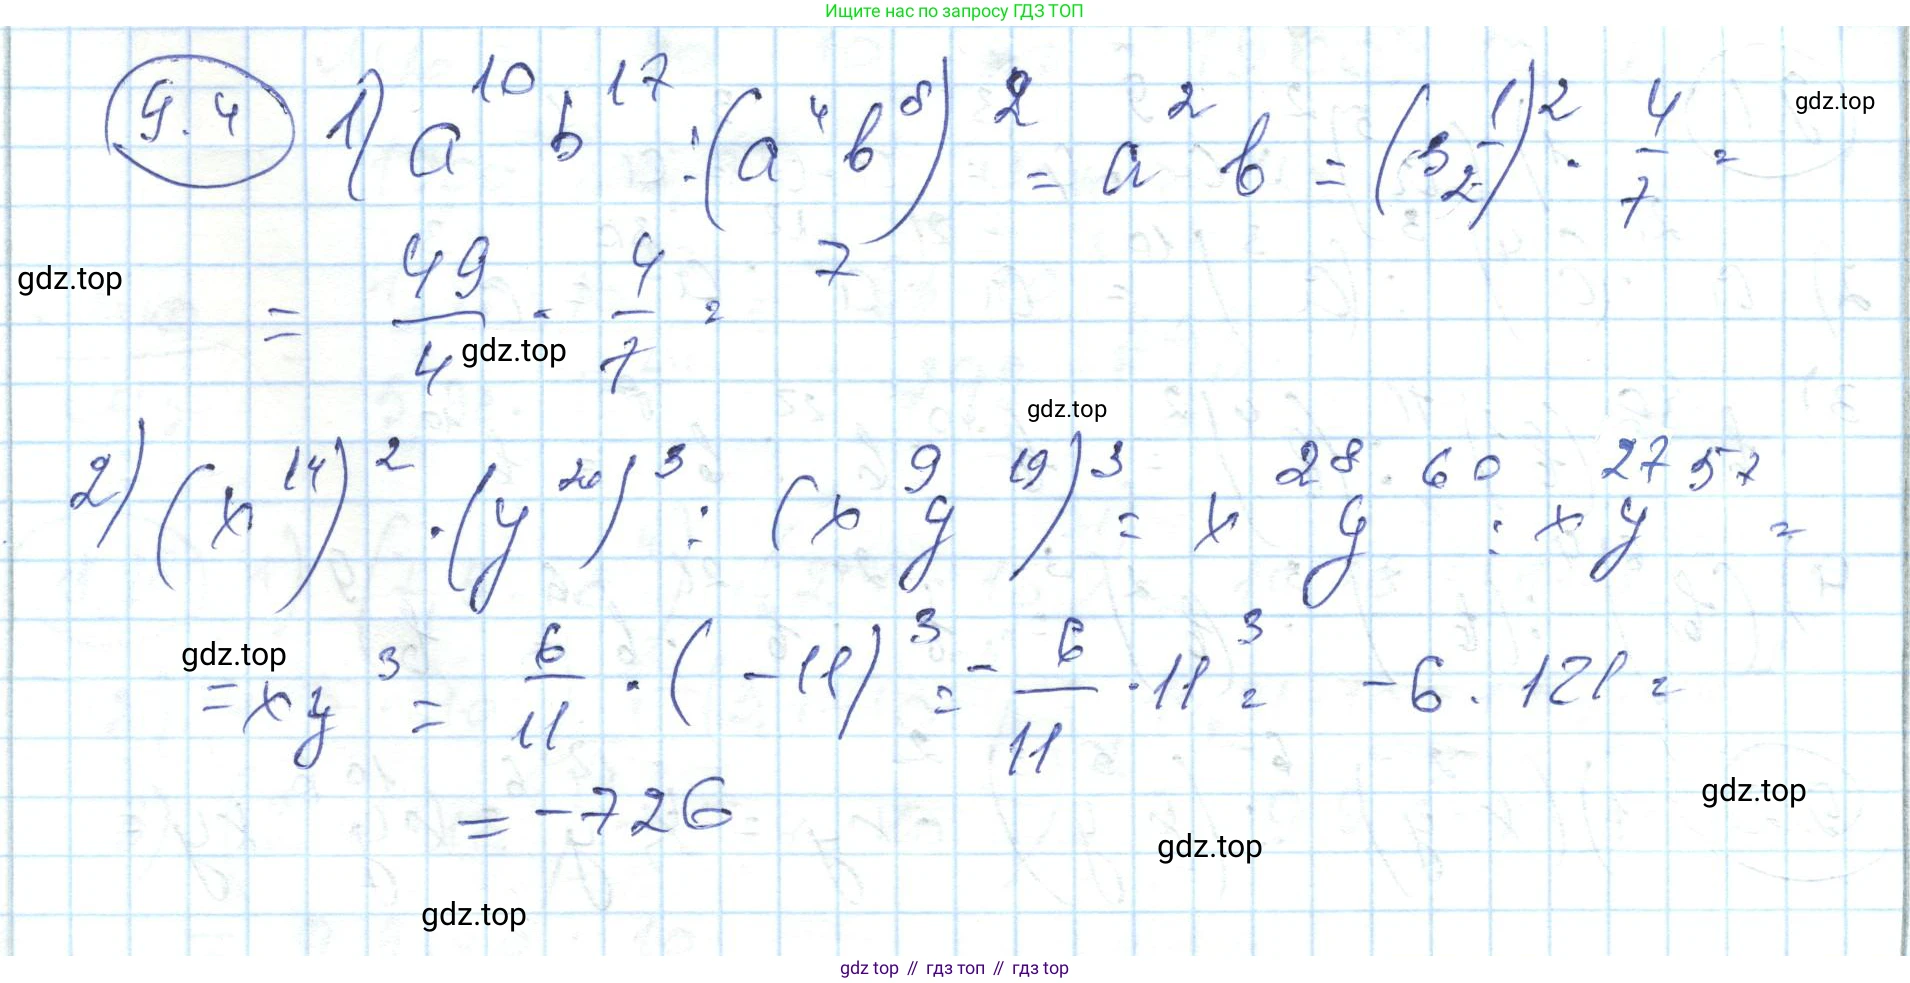 Ищите нас по запросу ГДЗ ТОП
9.4 1) a¹⁰ b¹⁷ : (a⁴ b⁸)² = a² b = (3 1/2)² · 4/7 =
gdz.top
gdz.top
= 49/4 · 4/7 = 7
gdz.top
gdz.top
2) (x¹⁴)² · (y²⁰)³ : (x⁹ y¹⁹)³ = x²⁸ y⁶⁰ : x²⁷ y⁵⁷ =
gdz.top
= x y³ = 6/11 · (-11)³ = - 6/11 · 11³ = -6 · 121 =
gdz.top
= -726
gdz.top
gdz.top
gdz top // гдз топ // гдз top